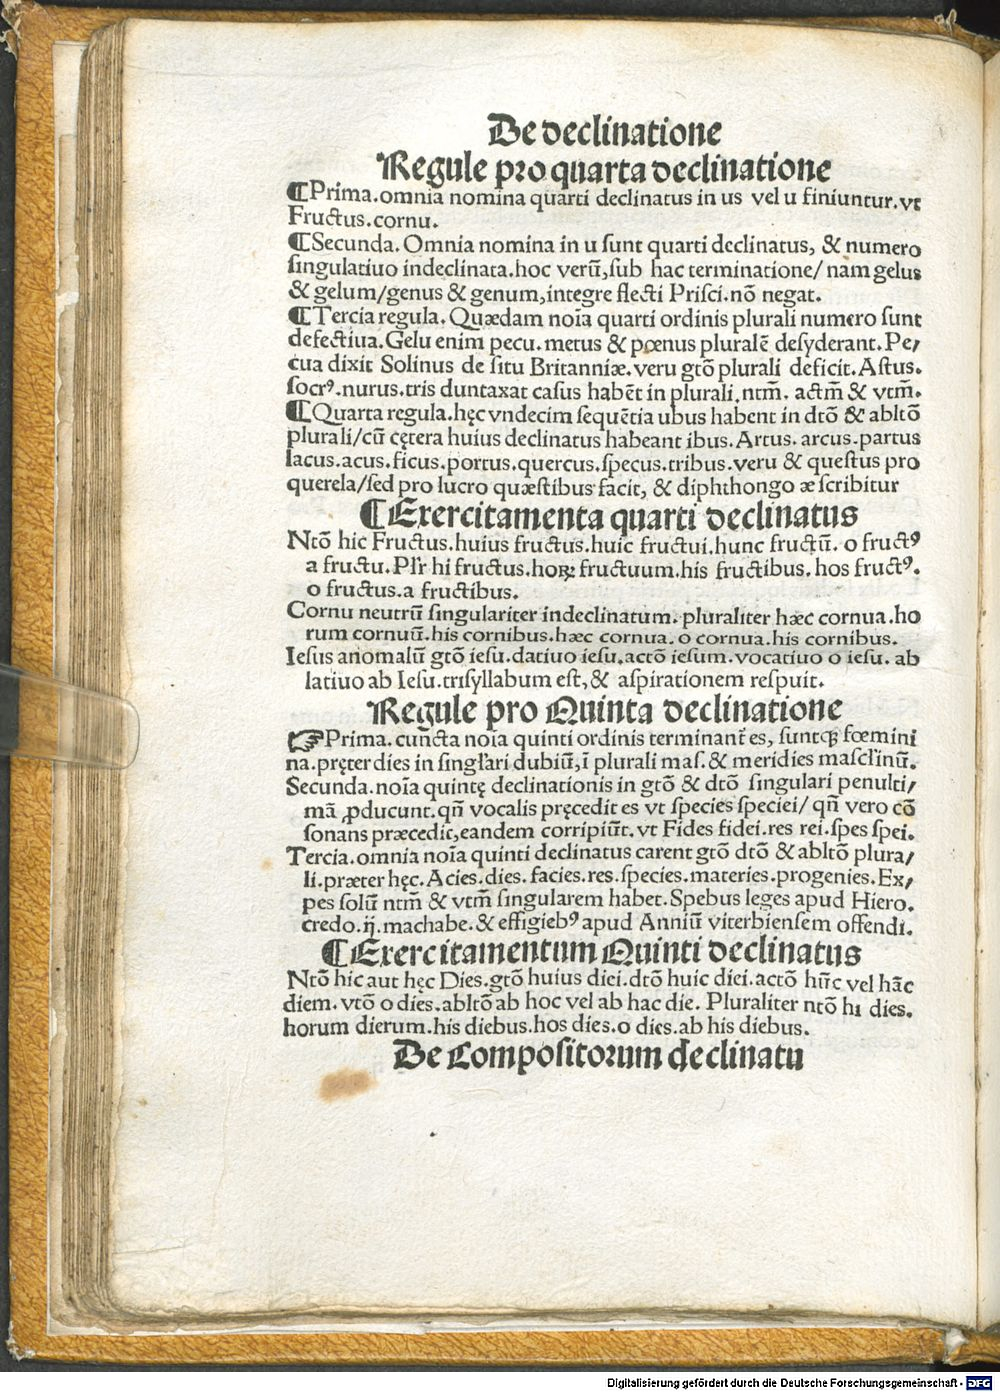 De declinatione
Regule pro quarta declinatione
¶Prima.omnia nomina quarti declinatus in us vel u finiuntur.vt
Fructus.cornu.
¶Secunda. Omnia nomina in u sunt quarti declinatus, & numero
singulatiuo indeclinata.hoc verũ,sub hac terminatione/ nam gelus
& gelum/genus & genum,integre flecti Prisci.nõ negat.
¶Tercia regula. Quædam noĩa quarti ordinis plurali numero sunt
defectiua.Gelu enim pecu.metus & pœnus pluralẽ desyderant.Pe/
cua dixit Solinus de situ Britanniæ.veru gtõ plurali deficit.Astus.
socrꝰ.nurus.tris duntaxat casus habẽt in plurali.ntm̃. actm̃ & vtm̃.
¶Quarta regula.hęc vndecim sequẽtia ubus habent in dtõ & abltõ
plurali/cũ cętera huius declinatus habeant ibus.Artus.arcus.partus
lacus.acus.ficus.portus.quercus.specus.tribus.veru & questus pro
querela/sed pro lucro quæstibus facit, & diphthongo æ scribitur
¶Exercitamenta quarti declinatus
Ntõ hic Fructus.huius fructus.huic fructui.hunc fructũ. o fructꝰ
a fructu. Plr̃ hi fructus.hoꝝ fructuum.his fructibus.hos fructꝰ.
o fructus.a fructibus.
Cornu neutrũ singulariter indeclinatum.pluraliter hæc cornua.ho
rum cornuũ.his cornibus.hæc cornua.o cornua.his cornibus.
Iesus anomalũ gtõ iesu.datiuo iesu.actõ iesum.vocatiuo o iesu. ab
latiuo ab Iesu.trisyllabum est,& aspirationem respuit.
Regule pro Quinta declinatione
☞Prima. cuncta noĩa quinti ordinis terminant̃ es, suntqꝫ fœmini
na.pręter dies in singlari dubiũ,ĩ plurali mas.& meridies masclinũ.
Secunda.noĩa quintę declinationis in gtõ & dtõ singulari penulti/
mã ꝓducunt.qñ vocalis pręcedit es vt species speciei/ qñ vero cõ
sonans præcedit,eandem corripiũt.vt Fides fidei.res rei.spes spei.
Tercia.omnia noĩa quinti declinatus carent gtõ dtõ & abltõ plura/
li.præter hęc.Acies.dies.facies.res.species.materies.progenies.Ex/
pes solũ ntm̃ & vtm̃ singularem habet.Spebus leges apud Hiero.
credo.ij.machabe.& effigiebꝰ apud Anniũ viterbiensem offendi.
¶Exercitamentum Quinti declinatus
Ntõ hic aut hęc Dies.gtõ huius diei.dtõ huic diei.actõ hũc vel hãc
diem.vtõ o dies.abltõ ab hoc vel ab hac die. Pluraliter ntõ hi dies.
horum dierum.his diebus.hos dies.o dies.ab his diebus.
De Compositorum declinatu
Digitalisierung gefördert durch die Deutsche Forschungsgemeinschaft - DFG